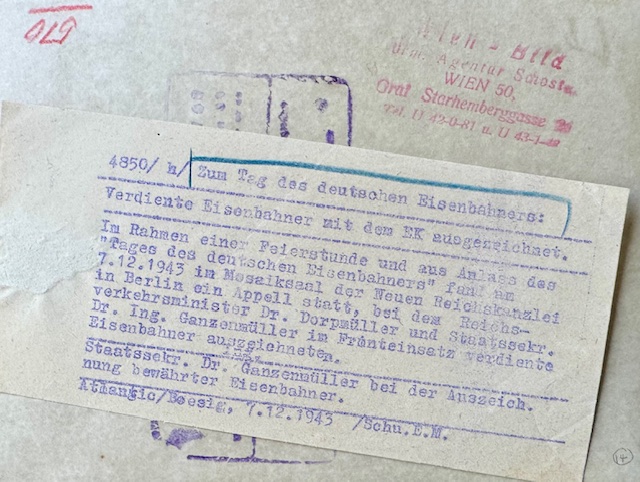 019
Wien - Bild
Agentur Schost
WIEN 50,
Graf Starhemberggasse
Tel. U 42-0-81 u. U 43-1-
4850/ h/ Zum Tag des deutschen Eisenbahners:
Verdiente Eisenbahner mit dem EK ausgezeichnet.
Im Rahmen einer Feierstunde und aus Anlass des
"Tages des deutschen Eisenbahners" fand am
7.12.1943 im Mosaiksaal der Neuen Reichskanzlei
in Berlin ein Appell statt, bei dem Reichs-
verkehrsminister Dr. Dorpmüller und Staatssekr.
Dr. Ing. Ganzenmüller im Fronteinsatz verdiente
Eisenbahner auszeichneten.
Staatssekr. Dr. Ganzenmüller bei der Auszeich.
nung bewährter Eisenbahner.
Atlantic/Boesig, 7.12.1943 /Schu.E.M.